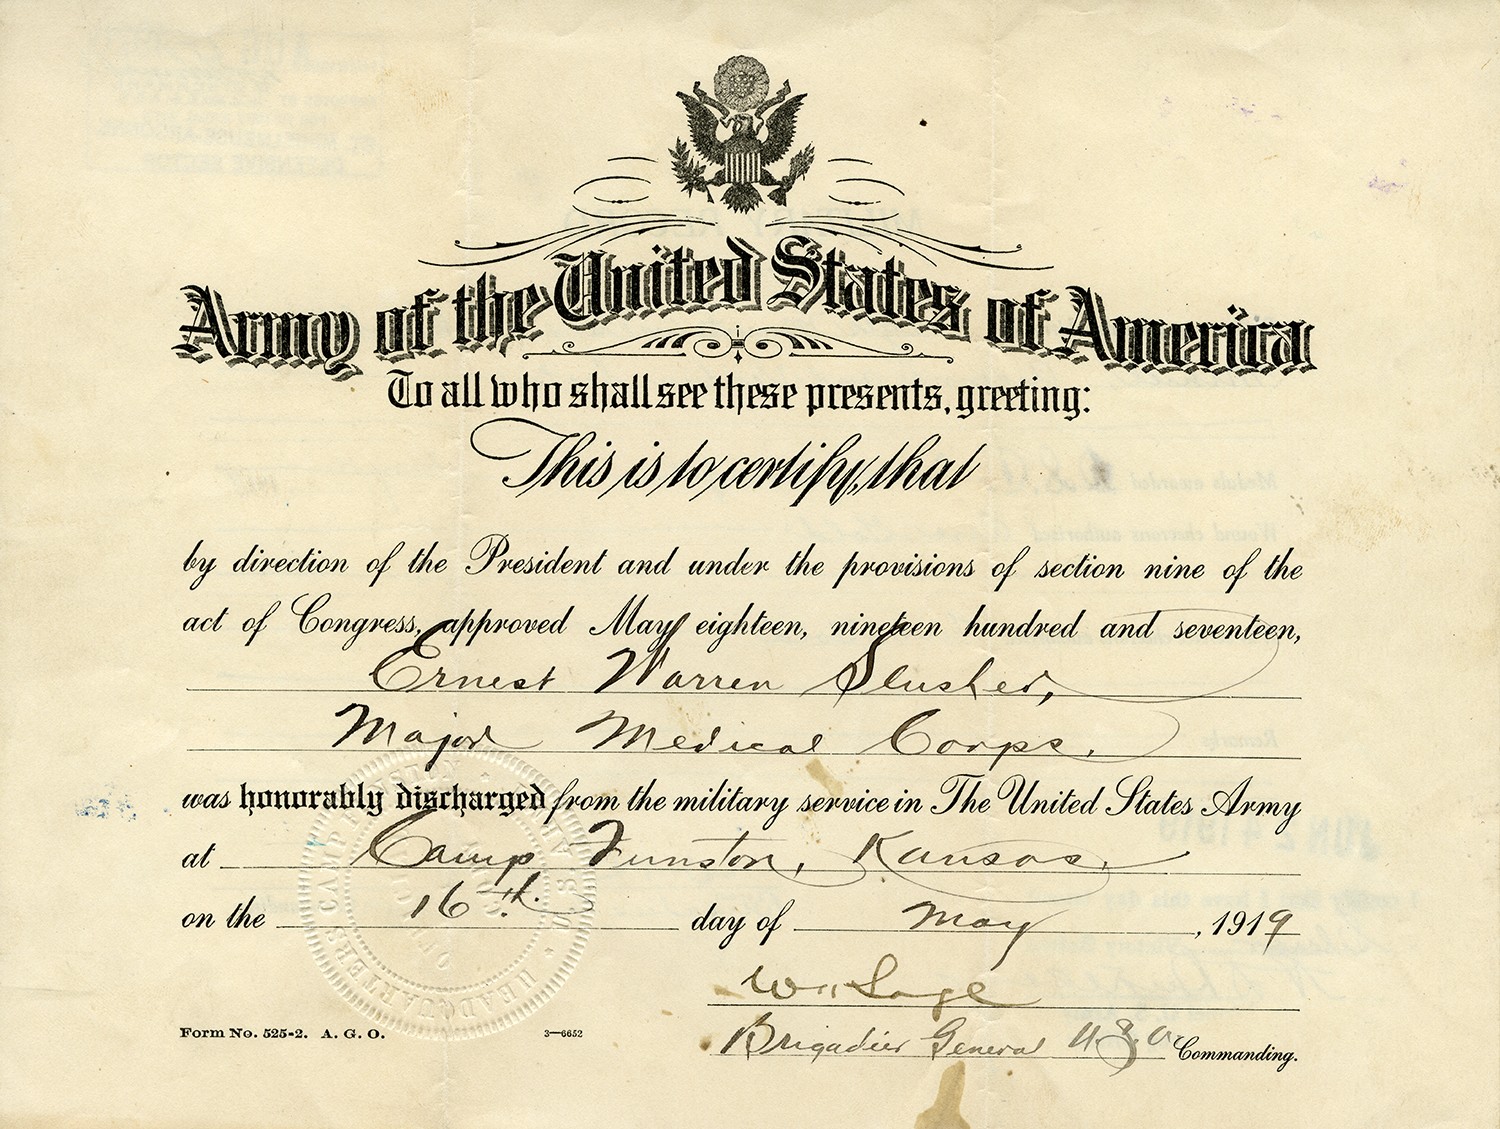 Army of the United States of America
To all who shall see these presents, greeting:
This is to certify, that
by direction of the President and under the provisions of section nine of the
act of Congress, approved May eighteen, nineteen hundred and seventeen,
Ernest Warren Slusher,
Major Medical Corps.
was honorably discharged from the military service in The United States Army
at Camp Funston, Kansas.
on the 16th. day of May, 1919
Wm Sage
Brigadier General U.S.A. Commanding.
Form No. 525-2. A. G. O. 3—6652